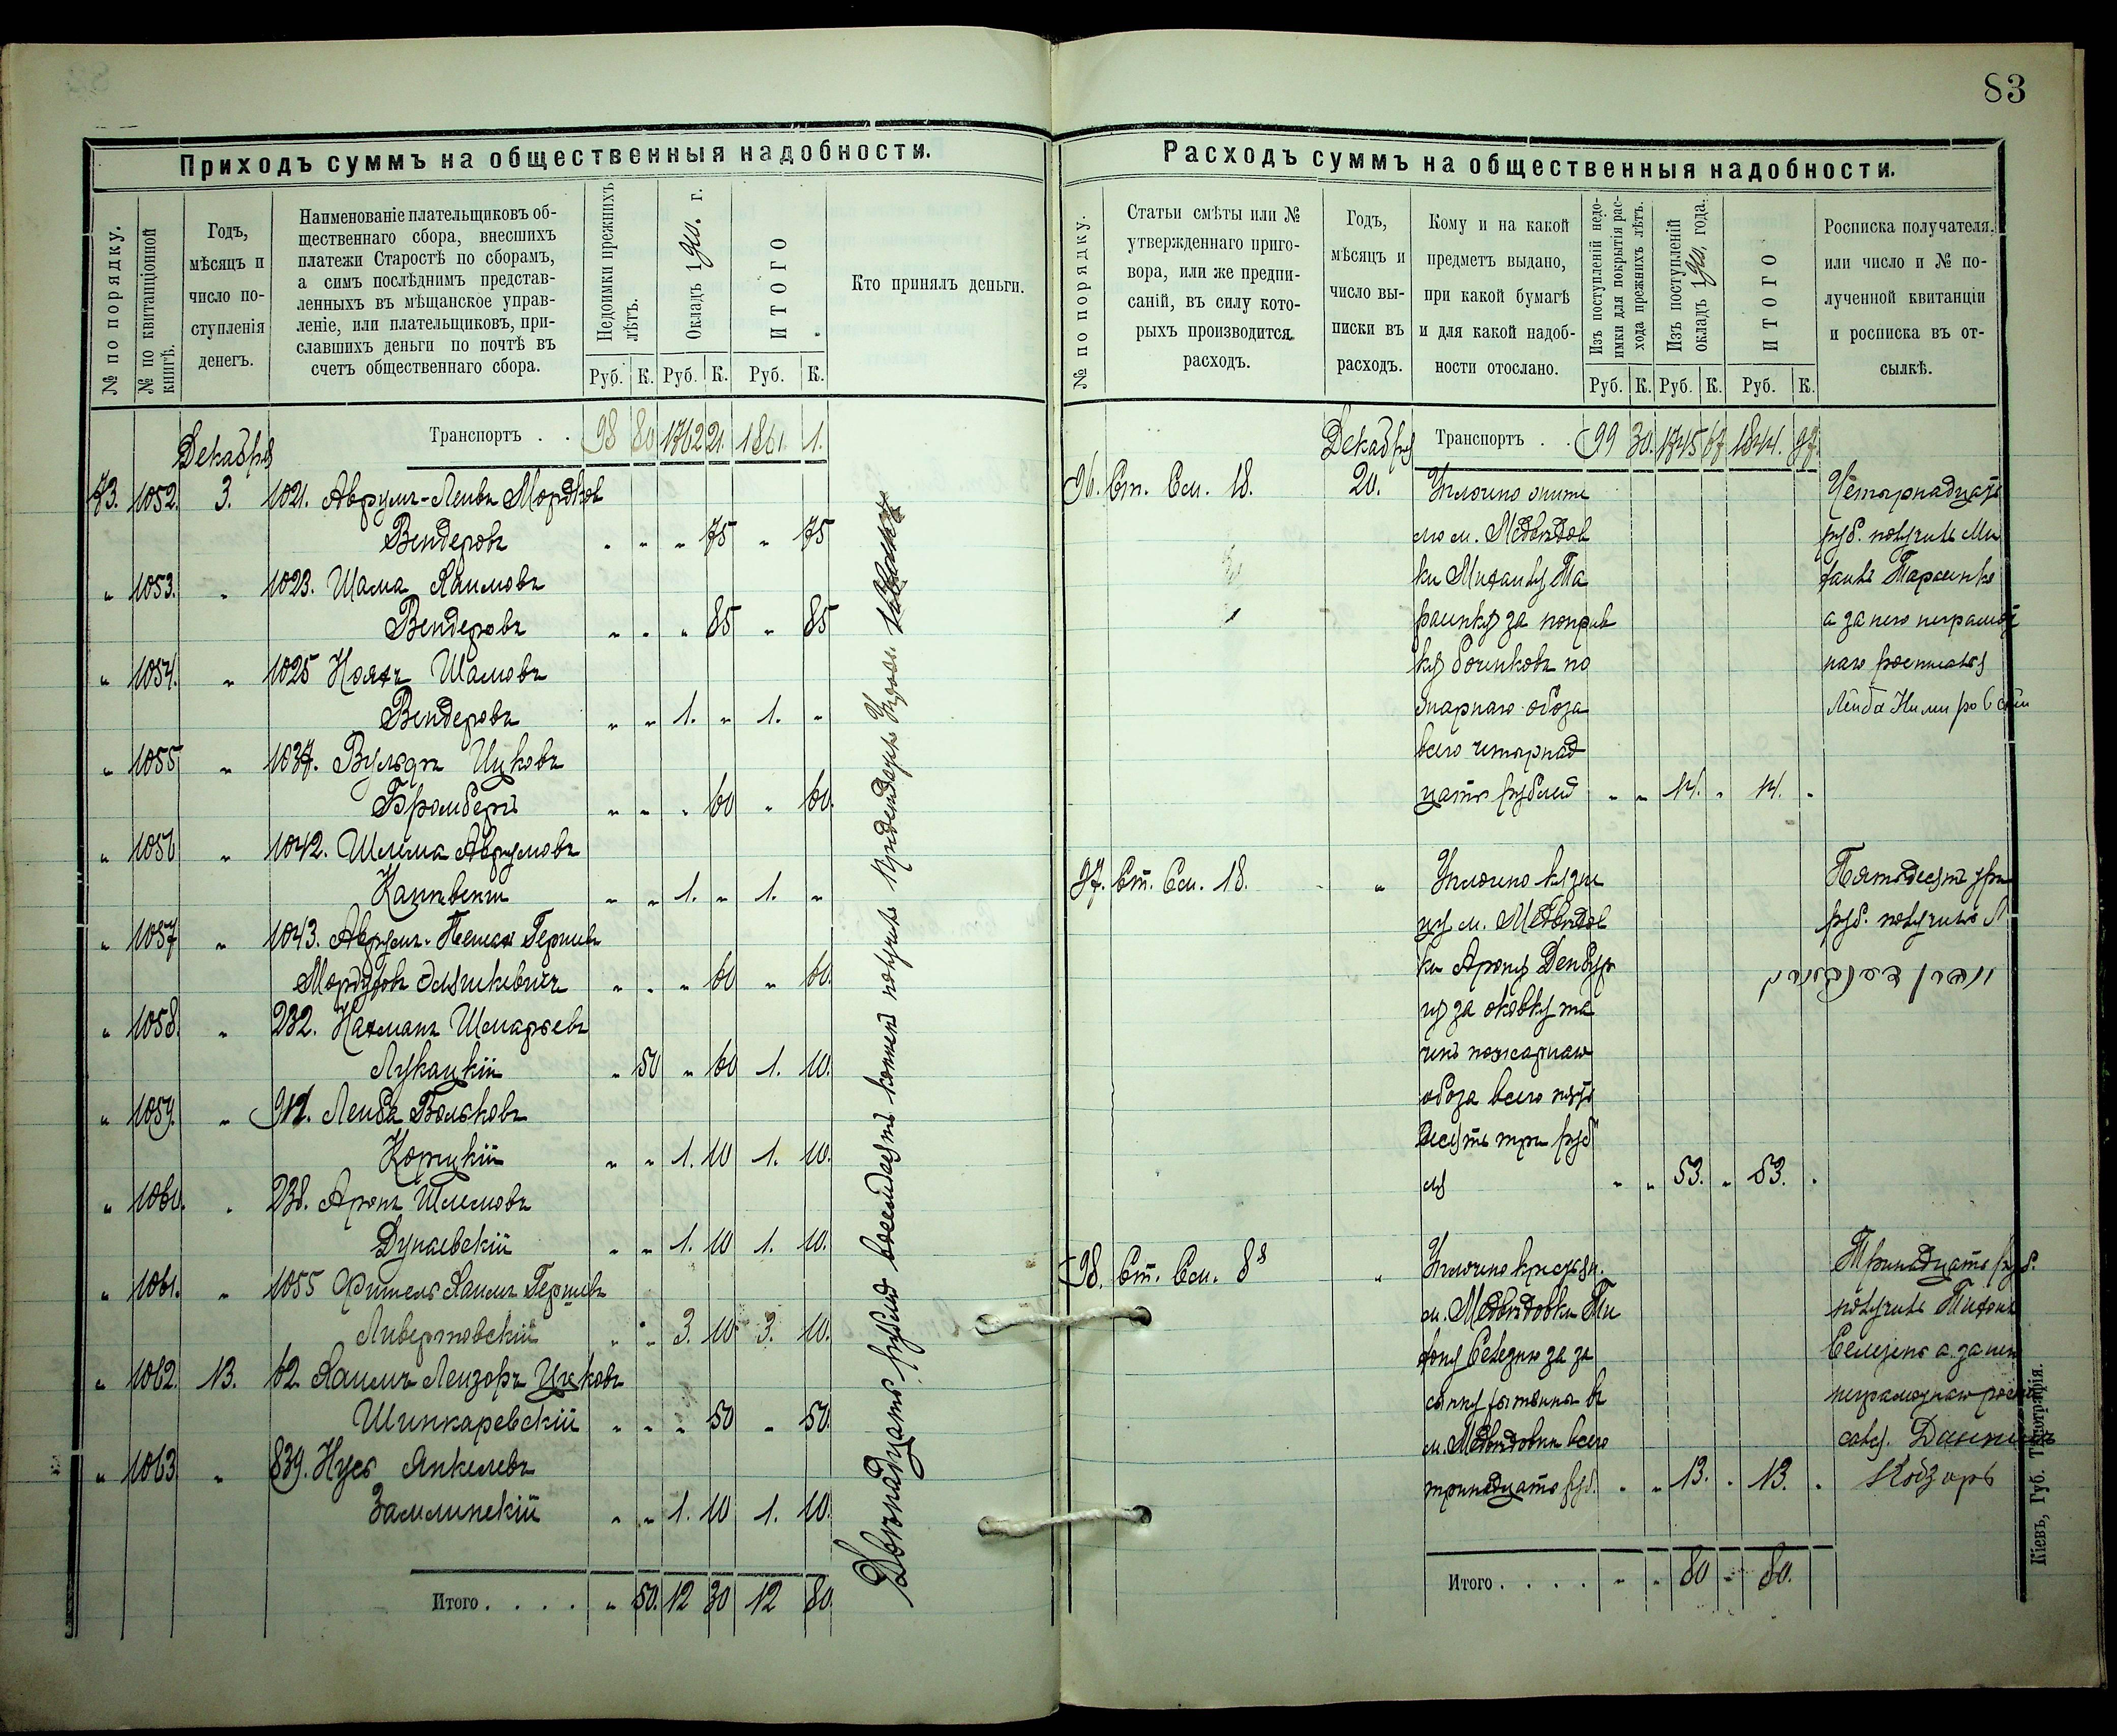 83
Приходъ суммъ на общественныя надобности.
№ по порядку.
№ по квитанціонной книгѣ.
Годъ,
мѣсяцъ и
число по-
ступленія
денегъ.
Наименованіе плательщиковъ об-
щественнаго сбора, внесшихъ
платежи Старостѣ по сборамъ,
а симъ послѣднимъ представ-
ленныхъ въ мѣщанское управ-
леніе, или плательщиковъ, при-
славшихъ деньги по почтѣ въ
счетъ общественнаго сбора.
Недоимки прежнихъ
лѣтъ.
Окладъ 1900. г.
ИТОГО
Кто принялъ деньги.
Руб. К. Руб. К. Руб. К.
Декабря
Транспортъ . . 98 80 1762 21. 1861. 1.
73. 1052. 3. 1021. Аврумъ-Лейвъ Мордков
Бендеровъ „ „ „ 75 „ 75
„ 1053. „ 1023. Шама Хаимовъ
Бендеровъ „ „ „ 85 „ 85
„ 1054. „ 1025 Нояхъ Шамовъ
Бендеровъ „ „ 1. „ 1. „
„ 1055 „ 1037. Вульфъ Ицковъ
Бромбергъ „ „ „ 60 „ 60.
„ 1056 „ 1042. Шлема Аврумовъ
„ „ 1. „ 1. „
„ 1057 „ 1043. Аврумъ-Песахъ Гершевъ
Мордуховъ „ „ „ 60 „ 60.
„ 1058. „ 232. Нахманъ Шмарьевъ
Лукацкій „ 50 „ 60 1. 10.
„ 1059. „ 917. Лейба Вольковъ
Корицкій „ „ 1. 10 1. 10.
„ 1060. „ 238. Аронъ Шлемовъ
Дунаевскій „ „ 1. 10 1. 10.
„ 1061. „ 1055 Фишель Хаимъ Гершевъ
Ливертовскій „ „ 3. 10 3. 10.
„ 1062. 13. 62 Хаимъ Лейзоръ Ицковъ
Шинкаревскій „ „ „ 50 „ 50.
„ 1063 „ 839. Нусъ Янкелевъ
Замлинскій „ „ 1. 10 1. 10.
Итого . . . . „ 50. 12 30 12 80.
Двѣнадцать рублей восемьдесятъ копѣекъ получилъ
Расходъ суммъ на общественныя надобности.
№ по порядку.
Статьи смѣты или №
утвержденнаго приго-
вора, или же предпи-
саній, въ силу кото-
рыхъ производится
расходъ.
Годъ,
мѣсяцъ и
число вы-
писки въ
расходъ.
Кому и на какой
предметъ выдано,
при какой бумагѣ
и для какой надоб-
ности отослано.
Изъ поступленій недо-
имки для покрытія рас-
хода прежнихъ лѣтъ.
Изъ поступленій
окладъ 1900. года.
ИТОГО
Росписка получателя,
или число и № по-
лученной квитанціи
и росписка въ от-
сылкѣ.
Руб. К. Руб. К. Руб. К.
Декабря Транспортъ . . 99 30. 1745 67 1844. 97.
96. Ст. См. 18. 20. Уплочено жите
лю м. Медвѣдов
ки Михаилу Та
расенку за поправ
ку боченковъ по
жарнаго обоза
всего четырнад
цать рублей „ „ 14. „ 14. „
Четырнадцать
руб. получилъ Ми
хаилъ Тарасенко
а за него неграмот
наго росписался
Лейба Нимировский
97. Ст. См. 18. „ Уплочено кузне
цу м. Медвѣдов
ки Арону
за оковку та
чекъ пожарнаго
обоза всего пять
десятъ три руб
ля „ „ 53. „ 53. „
Пятьдесятъ три
руб. получилъ
98. Ст. См. 8⁸ „ Уплочено крестьян.
м. Медвѣдовки Ти
хону за за
сыпку гатины въ
м. Медвѣдовки всего
тринадцать руб. „ „ 13. „ 13. „
Тринадцать руб.
получилъ Тихонъ
а за него
неграмотнаго роспи
сался. Даниилъ
Кобзарь
Итого . . . . „ „ 80 „ 80.
Кіевъ, Губ. Типографія.